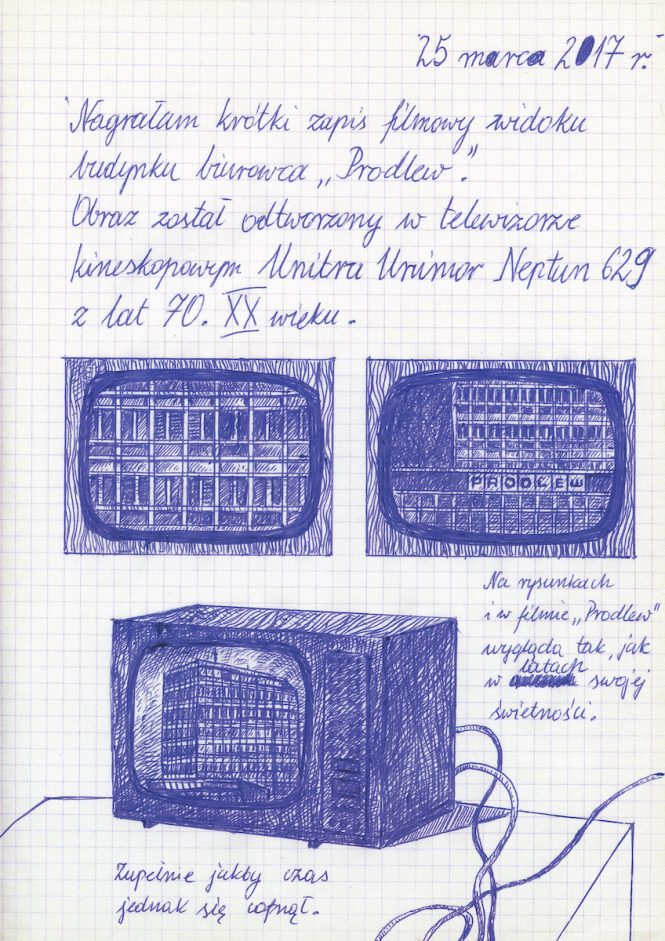 25 marca 2017 r.
Nagrałam krótki zapis filmowy widoku
budynku biurowca „Prodlew”.
Obraz został odtworzony w telewizorze
kineskopowym Unitra Unimor Neptun 629
z lat 70. XX wieku.
PRODLEW
Na rysunkach
i w filmie „Prodlew”
wygląda tak, jak
latach
w swojej
świetności.
Zupełnie jakby czas
jednak się cofnął.